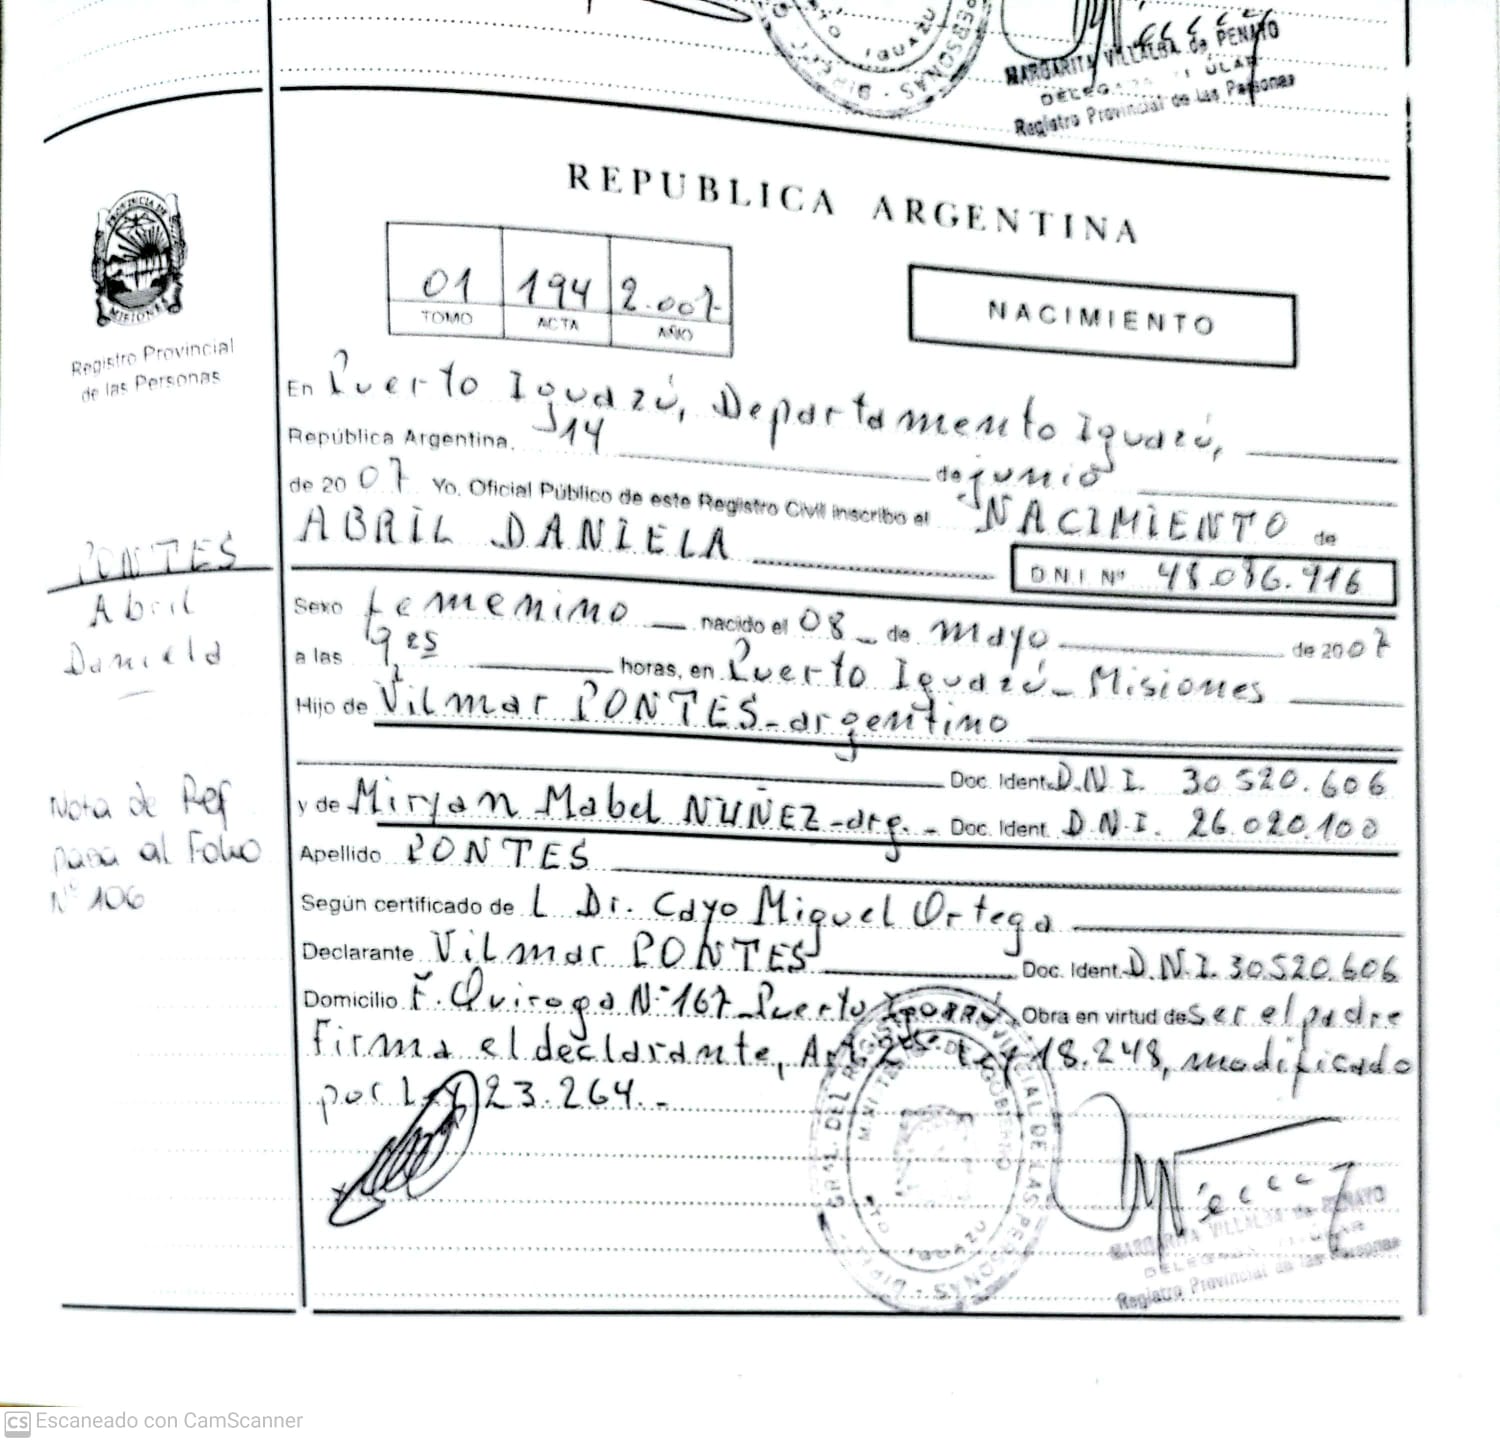 MARGARITA VILLALBA de PENAYO
Registro Provincial de las Personas
REPUBLICA ARGENTINA
PROVINCIA DE
MISIONES
Registro Provincial
de las Personas
01 194 2.007
TOMO ACTA AÑO
NACIMIENTO
En Puerto Iguazú, Departamento Iguazú,
República Argentina, 14 de junio
de 2007 Yo, Oficial Público de este Registro Civil inscribo el NACIMIENTO de
ABRIL DANIELA
D N I Nº 48.086.916
PONTES
Abril
Daniela
Sexo femenino nacido el 08 de mayo de 2007
a las 9 horas, en Puerto Iguazú - Misiones
Hijo de Vilmar PONTES - argentino
Doc. Ident. D.N.I. 30.520.606
y de Miryan Mabel NUÑEZ - arg. - Doc. Ident. D.N.I. 26.020.100
Apellido PONTES
Nota de Ref
pasa al Folio
Nº 106
Según certificado de L Dr. Cayo Miguel Ortega
Declarante Vilmar PONTES Doc. Ident. D.N.I. 30.520.606
Domicilio F. Quiroga Nº 167 - Puerto Iguazú, Obra en virtud de ser el padre
Firma el declarante, Art. Ley 18.248, modificado
por Ley 23.264.-
MARGARITA VILLALBA de PENAYO
Registro Provincial de las Personas
CS Escaneado con CamScanner